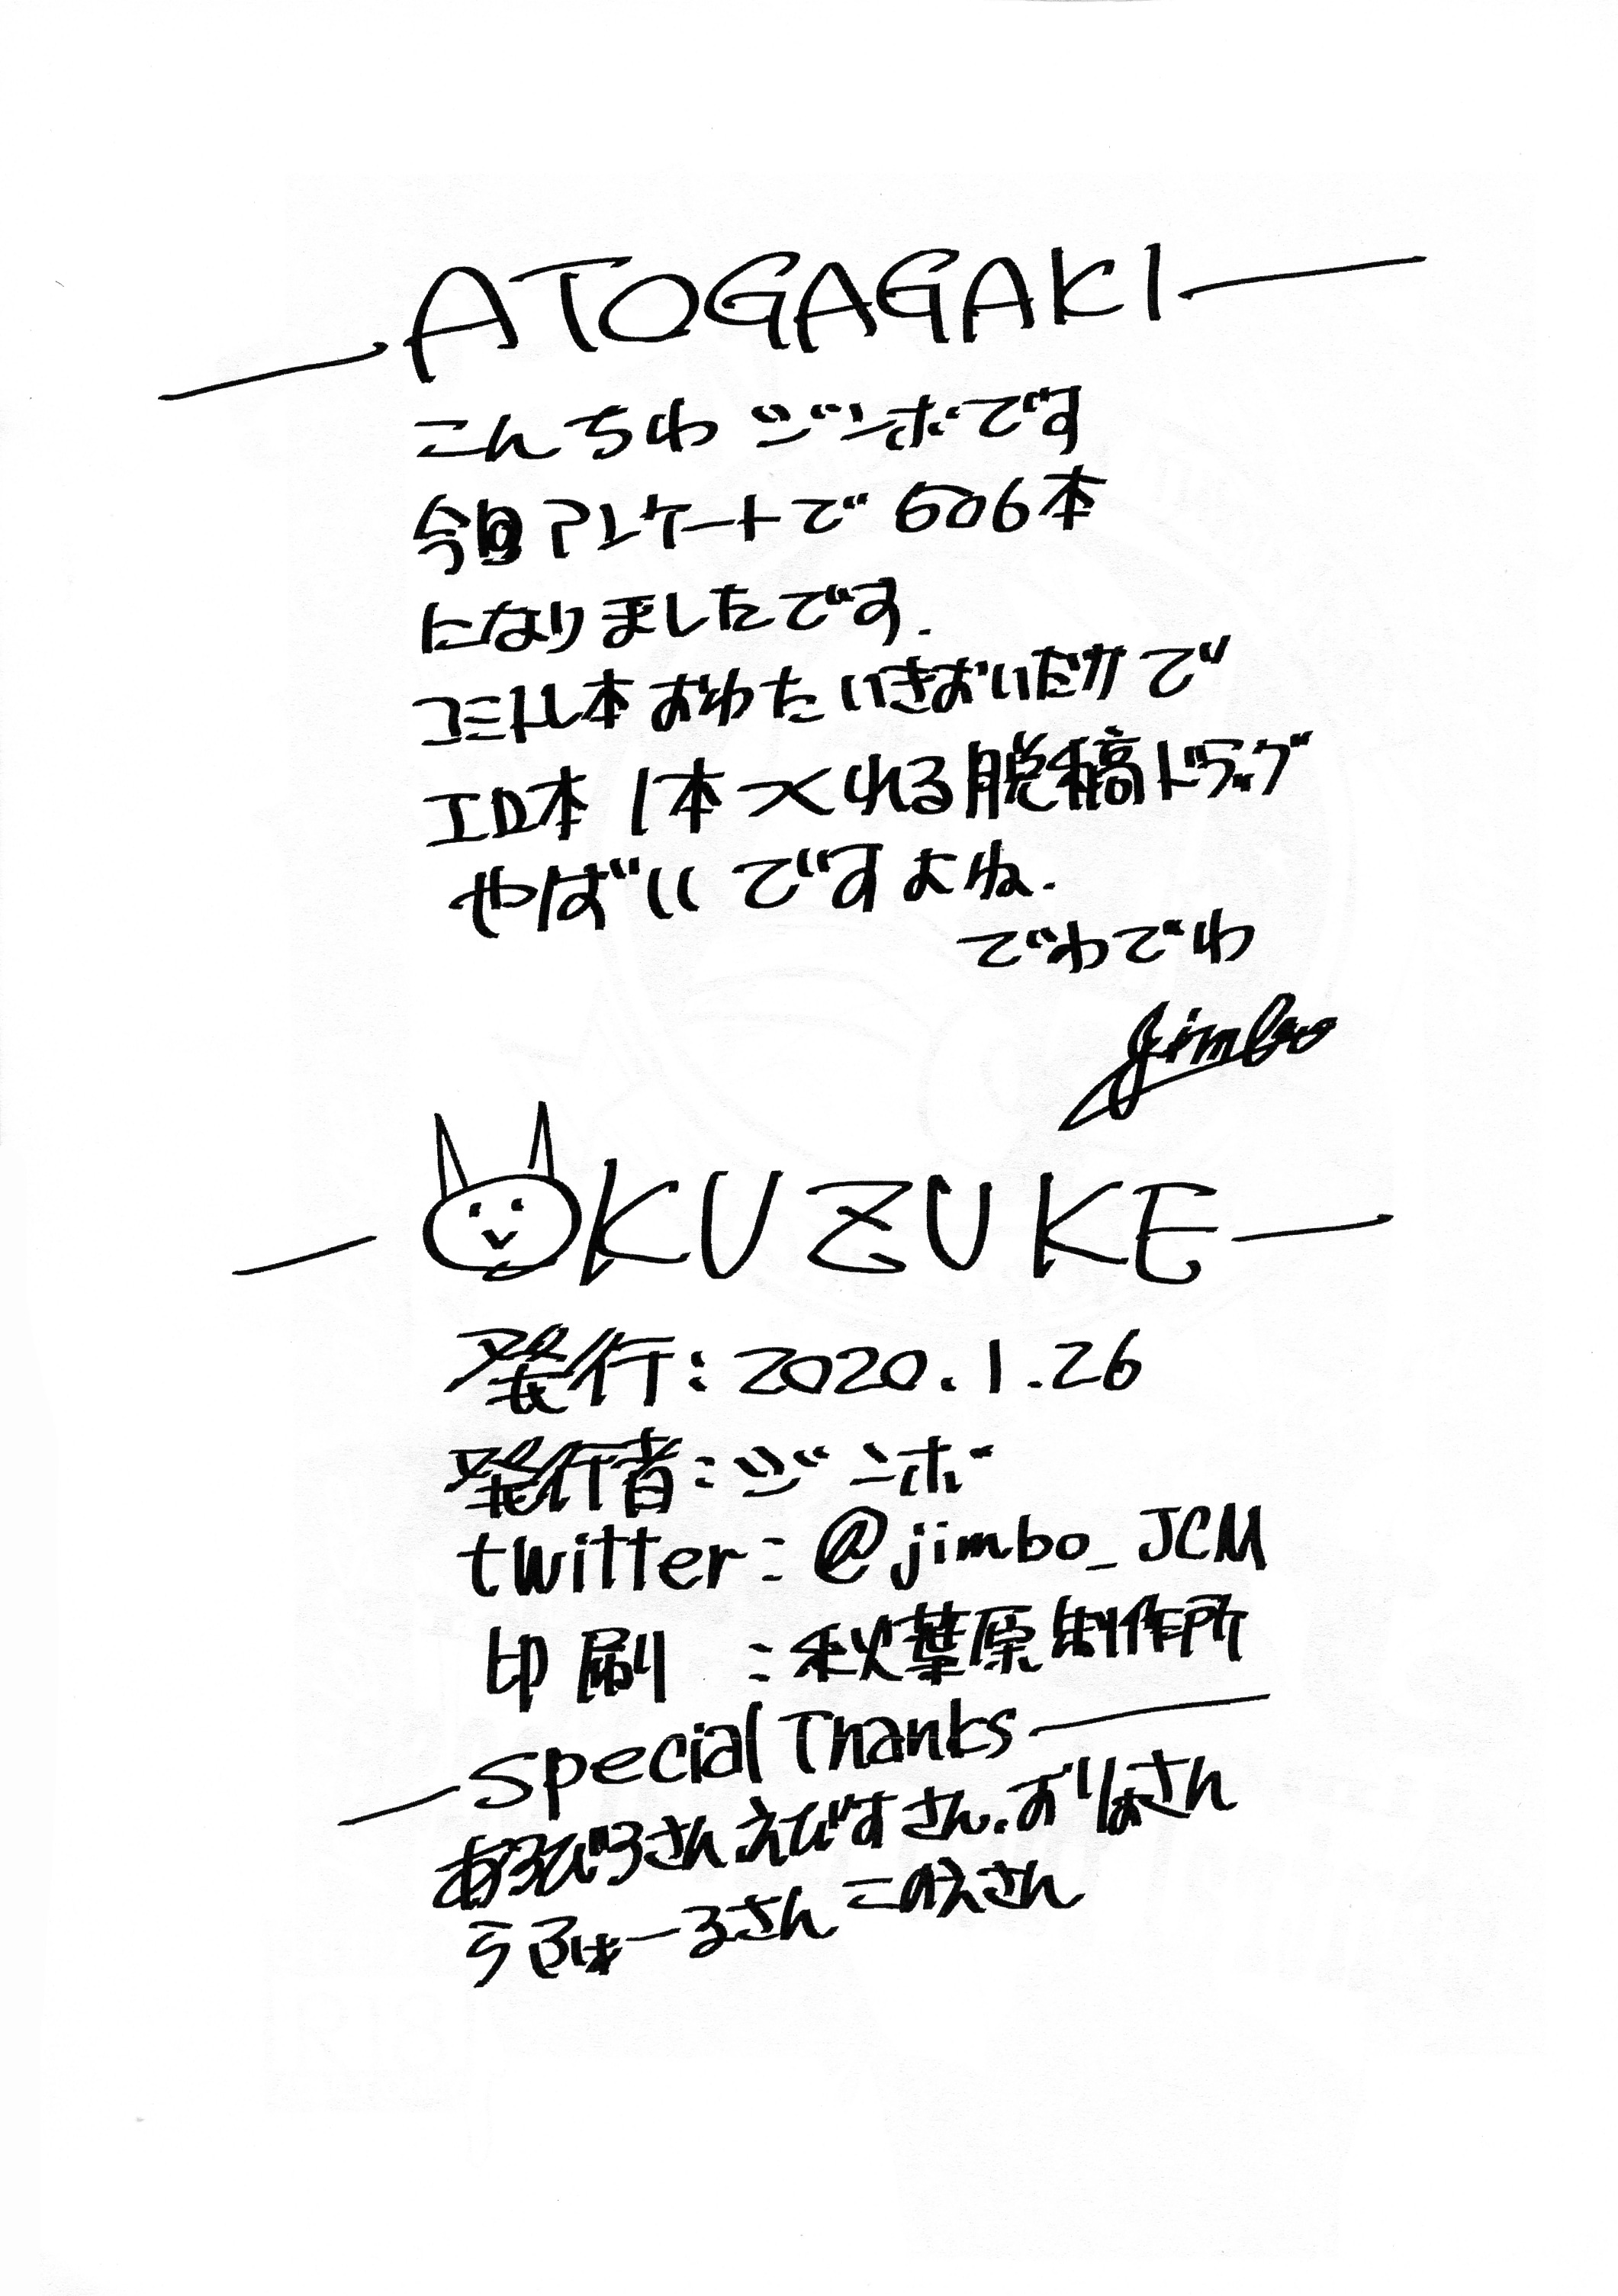 ATOGAGAKI
こんちわ ジンボです
今回アンケートで 606本
になりましたです.
コミトレ本おわたいきおいだかで
エロ本1本つくれる脱稿ドラッグ
やばいですよね.
でわでわ
jimbo
OKUZUKE
発行:2020.1.26
発行者:ジンボ
twitter:@jimbo_JCM
印刷 :秋葉原制作所
Special Thanks
さん えびすさん.おりょさん
さん このえさん